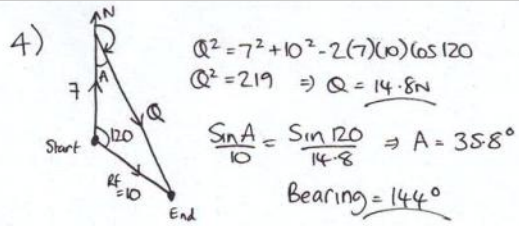 4)
N
A
7
Q
Start
120
RF
=10
End
Q² = 7² + 10² - 2(7)(10) Cos 120
Q² = 219 ⇒ Q = 14.8N
Sin A / 10 = Sin 120 / 14.8 ⇒ A = 35.8°
Bearing = 144°